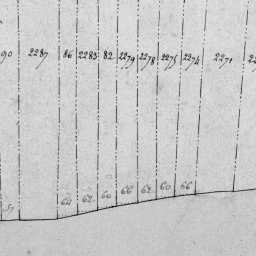 90 2287 86 2283 82 2279 2278 2275 2274 2271
64 62 60 66 62 60 56